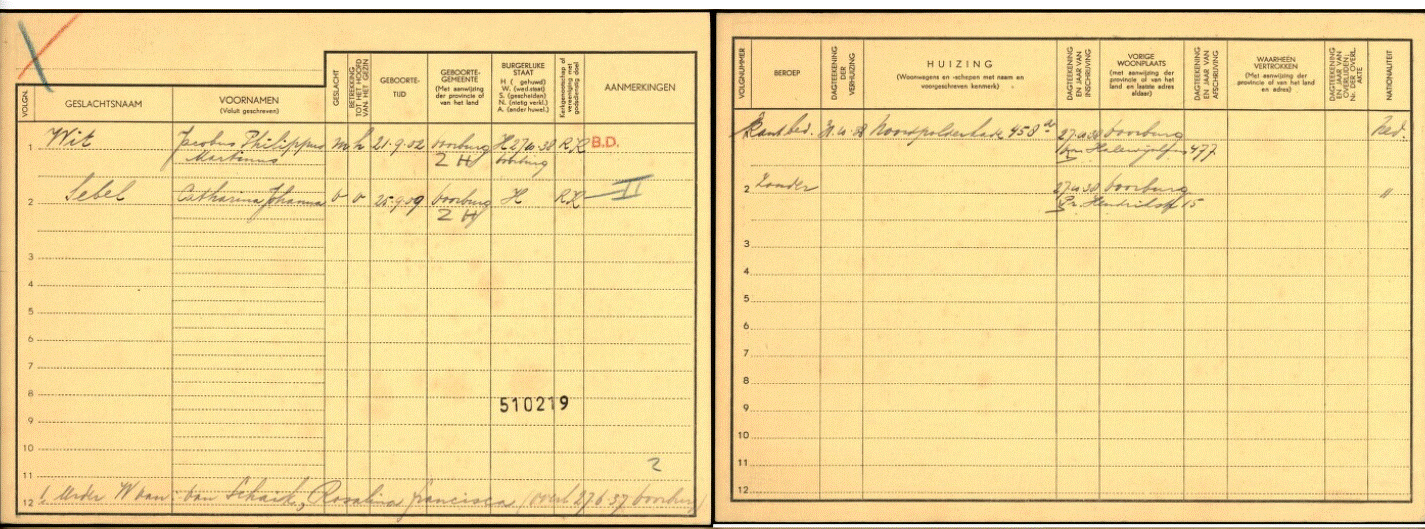 VOLGN.
GESLACHTSNAAM
VOORNAMEN
(Voluit geschreven)
GESLACHT
BETREKKING
TOT HET HOOFD
VAN HET GEZIN
GEBOORTE-
TIJD
GEBOORTE-
GEMEENTE
(Met aanwijzing
der provincie of
van het land)
BURGERLIJKE
STAAT
H ( gehuwd)
W. (wed.staat)
S. (gescheiden)
N. (nietig verkl.)
A. (ander huwel.)
Kerkgenootschap of
vereeniging met
godsdienstig doel
AANMERKINGEN
1 Wit Jacobus Philippus m h 21-9-02 Voorburg H 27-4-38 RK B.D.
Martinus Z H Voorburg
2 Sebel Catharina Johanna v v 25-9-09 Voorburg H RK II
Z H
3
4
5
6
7
8
510219
9
10
2
11
12 1. Eerder W van: van Schaik, Rosalina Francisca (overl 27 6 37 Voorburg)
VOLGNUMMER
BEROEP
DAGTEEKENING
DER
VERHUIZING
HUIZING
(Woonwagens en -schepen met naam en
voorgeschreven kenmerk)
DAGTEEKENING
EN JAAR VAN
INSCHRIJVING
VORIGE
WOONPLAATS
(met aanwijzing der
provincie of van het
land en laatste adres
aldaar)
DAGTEEKENING
EN JAAR VAN
AFSCHRIJVING
WAARHEEN
VERTROKKEN
(Met aanwijzing der
provincie of van het land
en adres)
DAGTEEKENING
EN JAAR VAN
OVERLIJDEN;
Nr. DER OVERL.
AKTE
NATIONALITEIT
1 Kantbed. Noordpolderkade 458 27-4-38 Voorburg Ned.
477
2 Zonder 27-4-38 Voorburg "
Pr. Hendrikstr 15
3
4
5
6
7
8
9
10
11
12